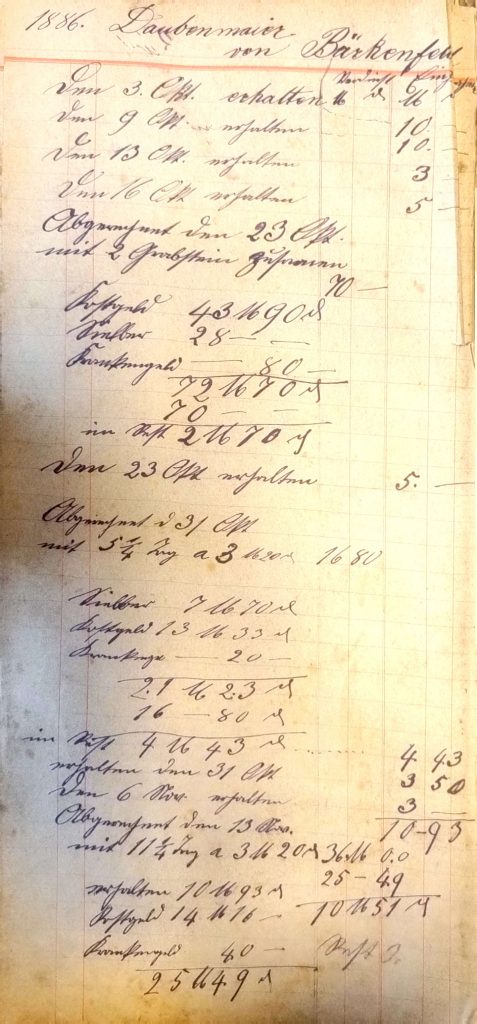 1886. Daubenmaier
von Bärkenfeld
Verdienst Einge
Den 3. Okt. erhalten M d 6 M
den 9 Okt. erhalten 10. —
10. —
Den 13 Okt. erhalten 3 —
Den 16 Okt erhalten 5 —
Abgerechnet den 23 Okt.
mit 2 Grabstein zusamen
70 —
Kostgeld 43 M 90 d
28 — —
Krankengeld — 80 —
72 M 70 d
70 — —
im Rest 2 M 70 d
Den 23 Okt erhalten 5. —
Abgerechnet d 31 Okt
mit 5 1/4 Tag a 3 M 20 d 16 80
7 M 70 d
Kostgeld 13 M 33 d
— 20 —
21 M 23 d
16 — 80 d
im Rest 4 M 43 d 4 43
erhalten den 31 Okt 3 50
den 6 Nov. erhalten 3 —
Abgerechnet den 13 Nov. 10-93
mit 11 1/4 Tag a 3 M 20 d 36 M 00
25 — 49
erhalten 10 M 93 d
Kostgeld 14 M 16 — 10 M 51 d
Krankengeld 40 — Rest
25 M 49 d